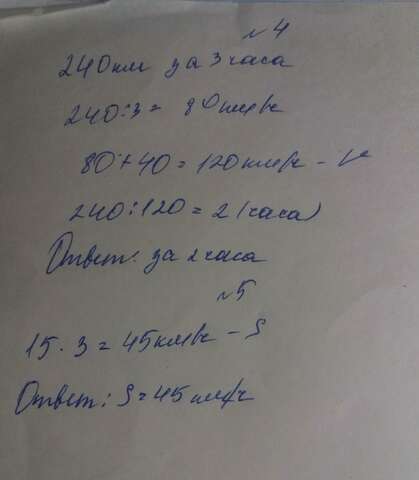 №4
240км за 3 часа
240:3= 80км/ч
80+40=120км/ч - V
240:120=2(часа)
Ответ: за 2 часа
№5
15·3=45км/ч - S
Ответ: S=45км/ч